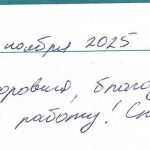 ноября 2025
доровья, благо
работу! Сп